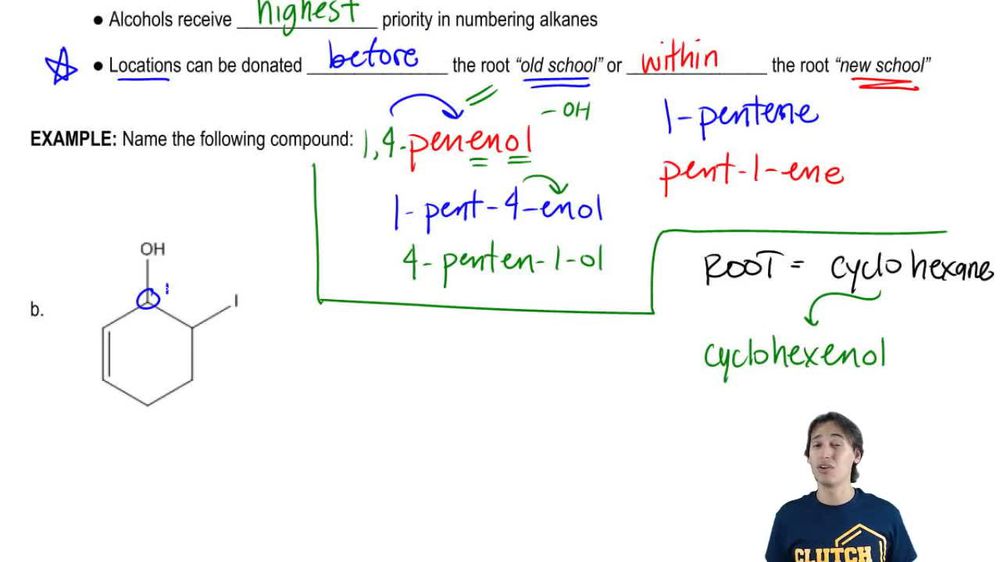 • Alcohols receive highest priority in numbering alkanes
• Locations can be donated before the root "old school" or within the root "new school"
-OH
EXAMPLE: Name the following compound: 1,4-penenol
1-pentene
pent-1-ene
1-pent-4-enol
4-penten-1-ol
ROOT = cyclohexane
cyclohexenol
b.
OH
1
I
CLUTCH